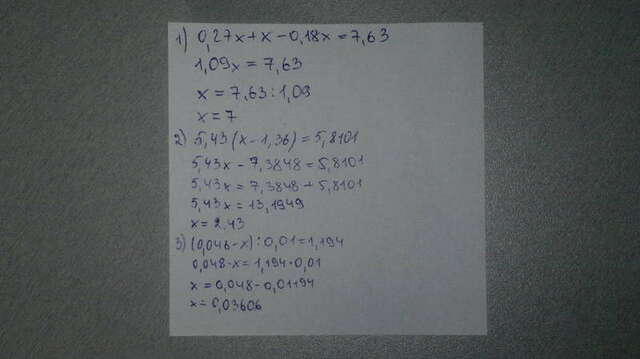 1) 0,27x+x-0,18x=7,63
1,09x=7,63
x=7,63:1,09
x=7
2) 5,43(x-1,36)=5,8101
5,43x-7,3848=5,8101
5,43x=7,3848+5,8101
5,43x=13,1949
x=2,43
3) (0,048-x):0,01=1,194
0,048-x=1,194·0,01
x=0,048-0,01194
x=0,03606